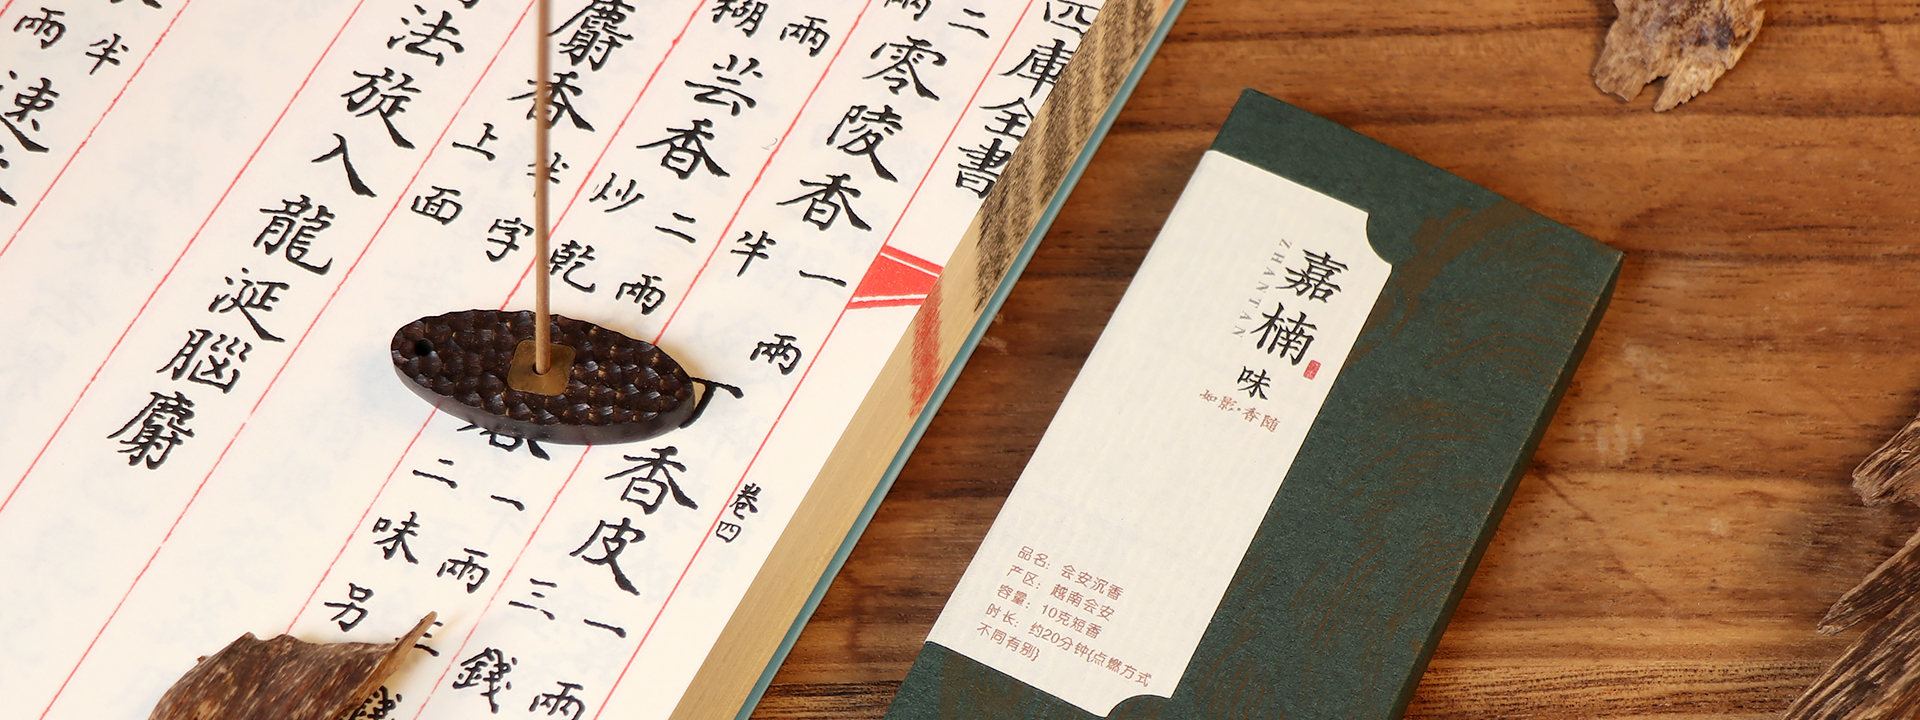 四庫全書
卷四
兩
二
零陵香一兩
半
丁香皮一兩
三錢
兩
糊
芸香二兩
炒乾
一兩
二味另
麝香半字
上面
法旋入龍涎腦麝
半
兩
速
嘉楠
ZHANTAN
味
如影·香随
品名：会安沉香
产区：越南会安
容量：10克短香
时长：约20分钟(点燃方式
不同有别)